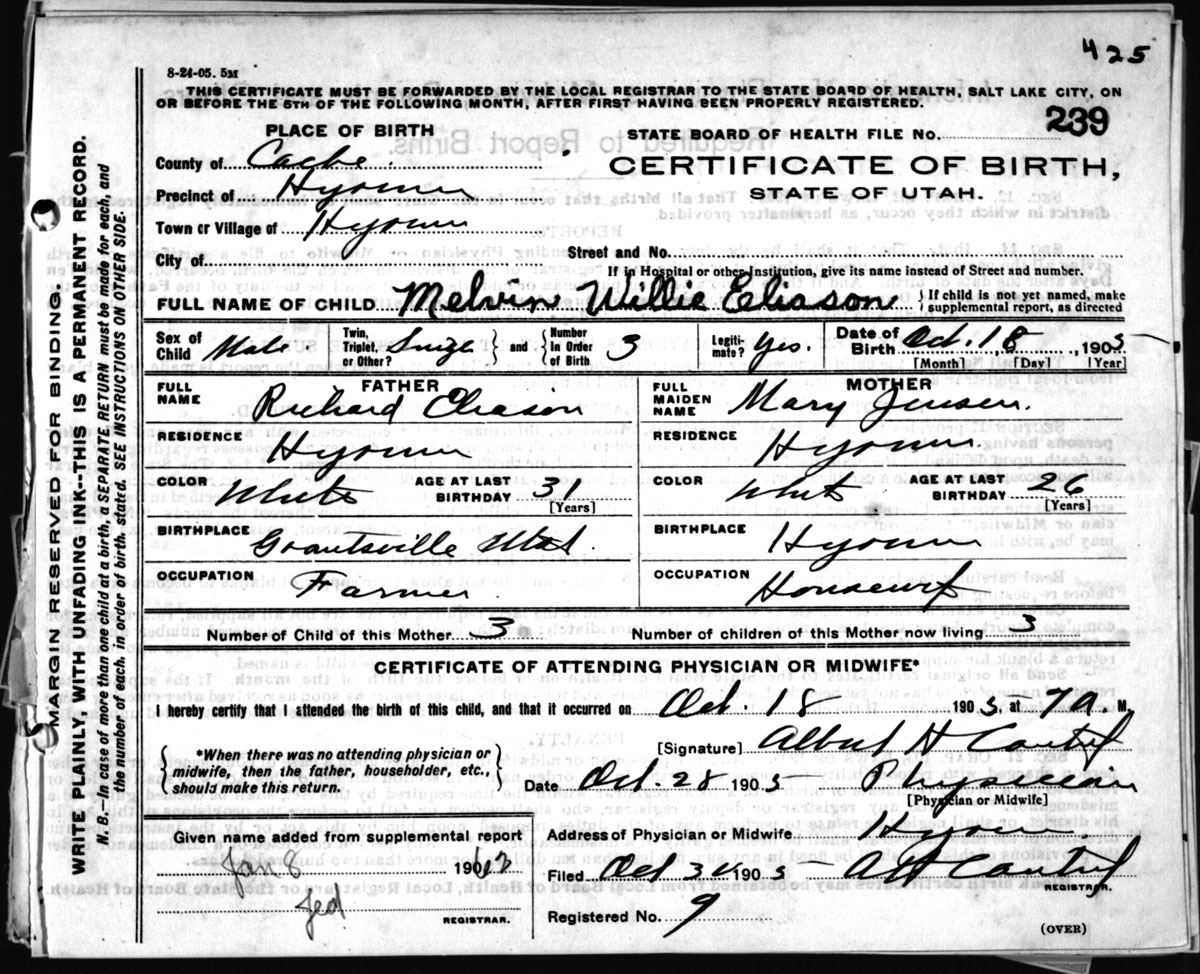 425
8-24-05. 5M
THIS CERTIFICATE MUST BE FORWARDED BY THE LOCAL REGISTRAR TO THE STATE BOARD OF HEALTH, SALT LAKE CITY, ON
OR BEFORE THE 5TH OF THE FOLLOWING MONTH, AFTER FIRST HAVING BEEN PROPERLY REGISTERED.
PLACE OF BIRTH
STATE BOARD OF HEALTH FILE No. 239
County of Cache.
CERTIFICATE OF BIRTH,
Precinct of Hyrum
STATE OF UTAH.
Town or Village of Hyrum
City of
Street and No.
If in Hospital or other Institution, give its name instead of Street and number.
FULL NAME OF CHILD Melvin Willie Eliason { If child is not yet named, make supplemental report, as directed
Sex of Child Male Twin, Triplet, or Other? Single } and { Number in Order of Birth 3 Legitimate? Yes. Date of Birth Oct. 18, 1905
[Month] [Day] [Year]
FATHER
MOTHER
FULL NAME Richard Eliason
FULL MAIDEN NAME Mary Jensen.
RESIDENCE Hyrum
RESIDENCE Hyrum.
COLOR White AGE AT LAST BIRTHDAY 31 [Years]
COLOR White AGE AT LAST BIRTHDAY 26 [Years]
BIRTHPLACE Grantsville Utah.
BIRTHPLACE Hyrum
OCCUPATION Farmer.
OCCUPATION Housewife
Number of Child of this Mother 3 Number of children of this Mother now living 3
CERTIFICATE OF ATTENDING PHYSICIAN OR MIDWIFE*
I hereby certify that I attended the birth of this child, and that it occurred on Oct. 18 1905, at 7 A. M.
{ *When there was no attending physician or midwife, then the father, householder, etc., should make this return. }
[Signature] Albert H
Date Oct 28 1905 Physician
[Physician or Midwife]
Given name added from supplemental report
Address of Physician or Midwife Hyrum.
Jan 8 190
Filed Oct 1905 AH
REGISTRAR.
REGISTRAR.
Registered No. 9
(OVER)
MARGIN RESERVED FOR BINDING.
WRITE PLAINLY, WITH UNFADING INK--THIS IS A PERMANENT RECORD.
N. B.--In case of more than one child at a birth, a SEPARATE RETURN must be made for each, and
the number of each, in order of birth, stated. SEE INSTRUCTIONS ON OTHER SIDE.